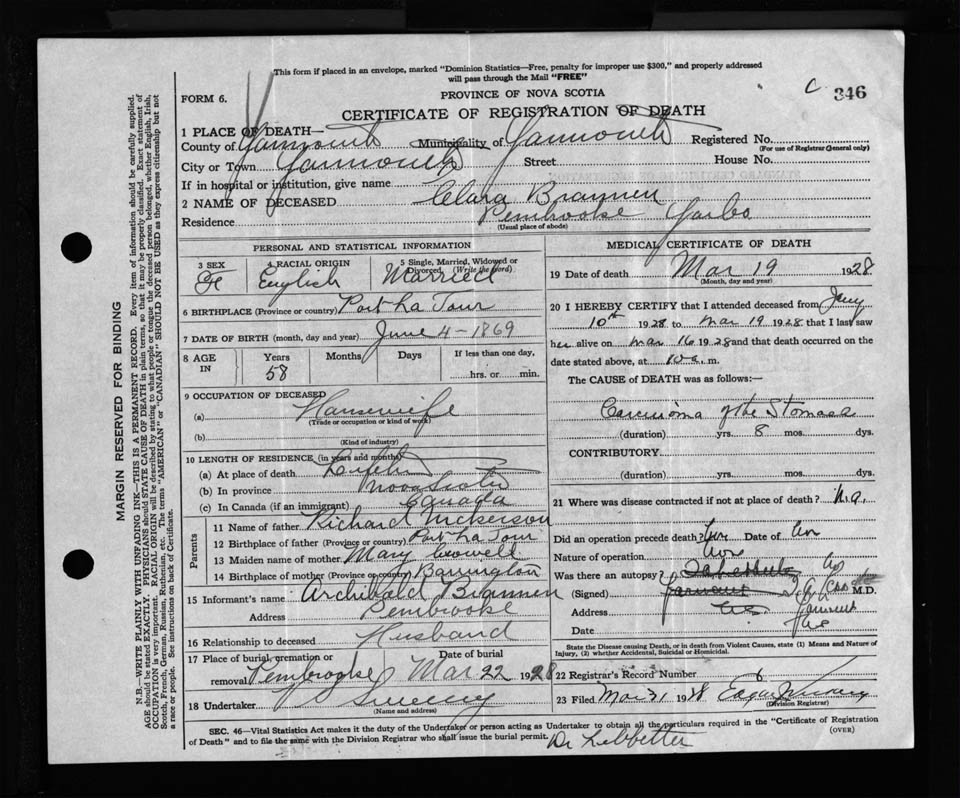 This form if placed in an envelope, marked "Dominion Statistics—Free, penalty for improper use $300," and properly addressed
will pass through the Mail "FREE"
PROVINCE OF NOVA SCOTIA
C 346
FORM 6.
CERTIFICATE OF REGISTRATION OF DEATH
1 PLACE OF DEATH—
County of Yarmouth Municipality of Yarmouth Registered No.
(For use of Registrar General only)
City or Town Yarmouth Street House No.
If in hospital or institution, give name
2 NAME OF DECEASED Clara Brannen
Residence Pembrooke Yar Co
(Usual place of abode)
PERSONAL AND STATISTICAL INFORMATION
3 SEX 4 RACIAL ORIGIN 5 Single, Married, Widowed or
Divorced (Write the word)
F English Married
6 BIRTHPLACE (Province or country) Port La Tour
7 DATE OF BIRTH (month, day and year) June 4 - 1869
8 AGE IN Years Months Days If less than one day,
58 hrs. or min.
9 OCCUPATION OF DECEASED
(a) Housewife
(Trade or occupation or kind of work)
(b)
(Kind of industry)
10 LENGTH OF RESIDENCE (in years and months)
(a) At place of death
(b) In province Nova Scotia
(c) In Canada (if an immigrant) Canada
Parents
11 Name of father Richard Nickerson
12 Birthplace of father (Province or country) Port La Tour
13 Maiden name of mother Mary Crowell
14 Birthplace of mother (Province or country) Barrington
15 Informant's name Archibald Brannen
Address Pembrooke
16 Relationship to deceased Husband
17 Place of burial, cremation or Date of burial
removal Pembrooke Mar 22 1928
18 Undertaker Sweeny
(Name and address)
MEDICAL CERTIFICATE OF DEATH
19 Date of death Mar 19 1928
(Month, day and year)
20 I HEREBY CERTIFY that I attended deceased from Jany
10th 1928 to Mar 19 1928 that I last saw
her alive on Mar 16 1928 and that death occurred on the
date stated above, at 10 a. m.
The CAUSE of DEATH was as follows:—
Carcinoma of the Stomach
(duration) yrs. 8 mos. dys.
CONTRIBUTORY
(duration) yrs. mos. dys.
21 Where was disease contracted if not at place of death?
Did an operation precede death? Date of
Nature of operation
Was there an autopsy?
(Signed) M.D.
Address
Date
State the Disease causing Death, or in death from Violent Causes, state (1) Means and Nature of
Injury, (2) whether Accidental, Suicidal or Homicidal.
22 Registrar's Record Number 6
23 Filed Mar 31 1928 Edgar
(Division Registrar)
SEC. 46—Vital Statistics Act makes it the duty of the Undertaker or person acting as Undertaker to obtain all the particulars required in the "Certificate of Registration
of Death" and to file the same with the Division Registrar who shall issue the burial permit.
(OVER)
Dr Lebbetter
MARGIN RESERVED FOR BINDING
N.B.—WRITE PLAINLY WITH UNFADING INK—THIS IS A PERMANENT RECORD. Every item of information should be carefully supplied.
AGE should be stated EXACTLY. PHYSICIANS should STATE CAUSE OF DEATH in plain terms, so that it may be properly classified. Exact statement of
OCCUPATION is very important. RACIAL ORIGIN will be described by stating to what people or tongue the deceased person belonged, whether English, Irish,
Scotch, French, German, Russian, Ruthenian, etc. The terms "AMERICAN" or "CANADIAN" SHOULD NOT BE USED as they express citizenship but not
a race or people. See instructions on back of Certificate.